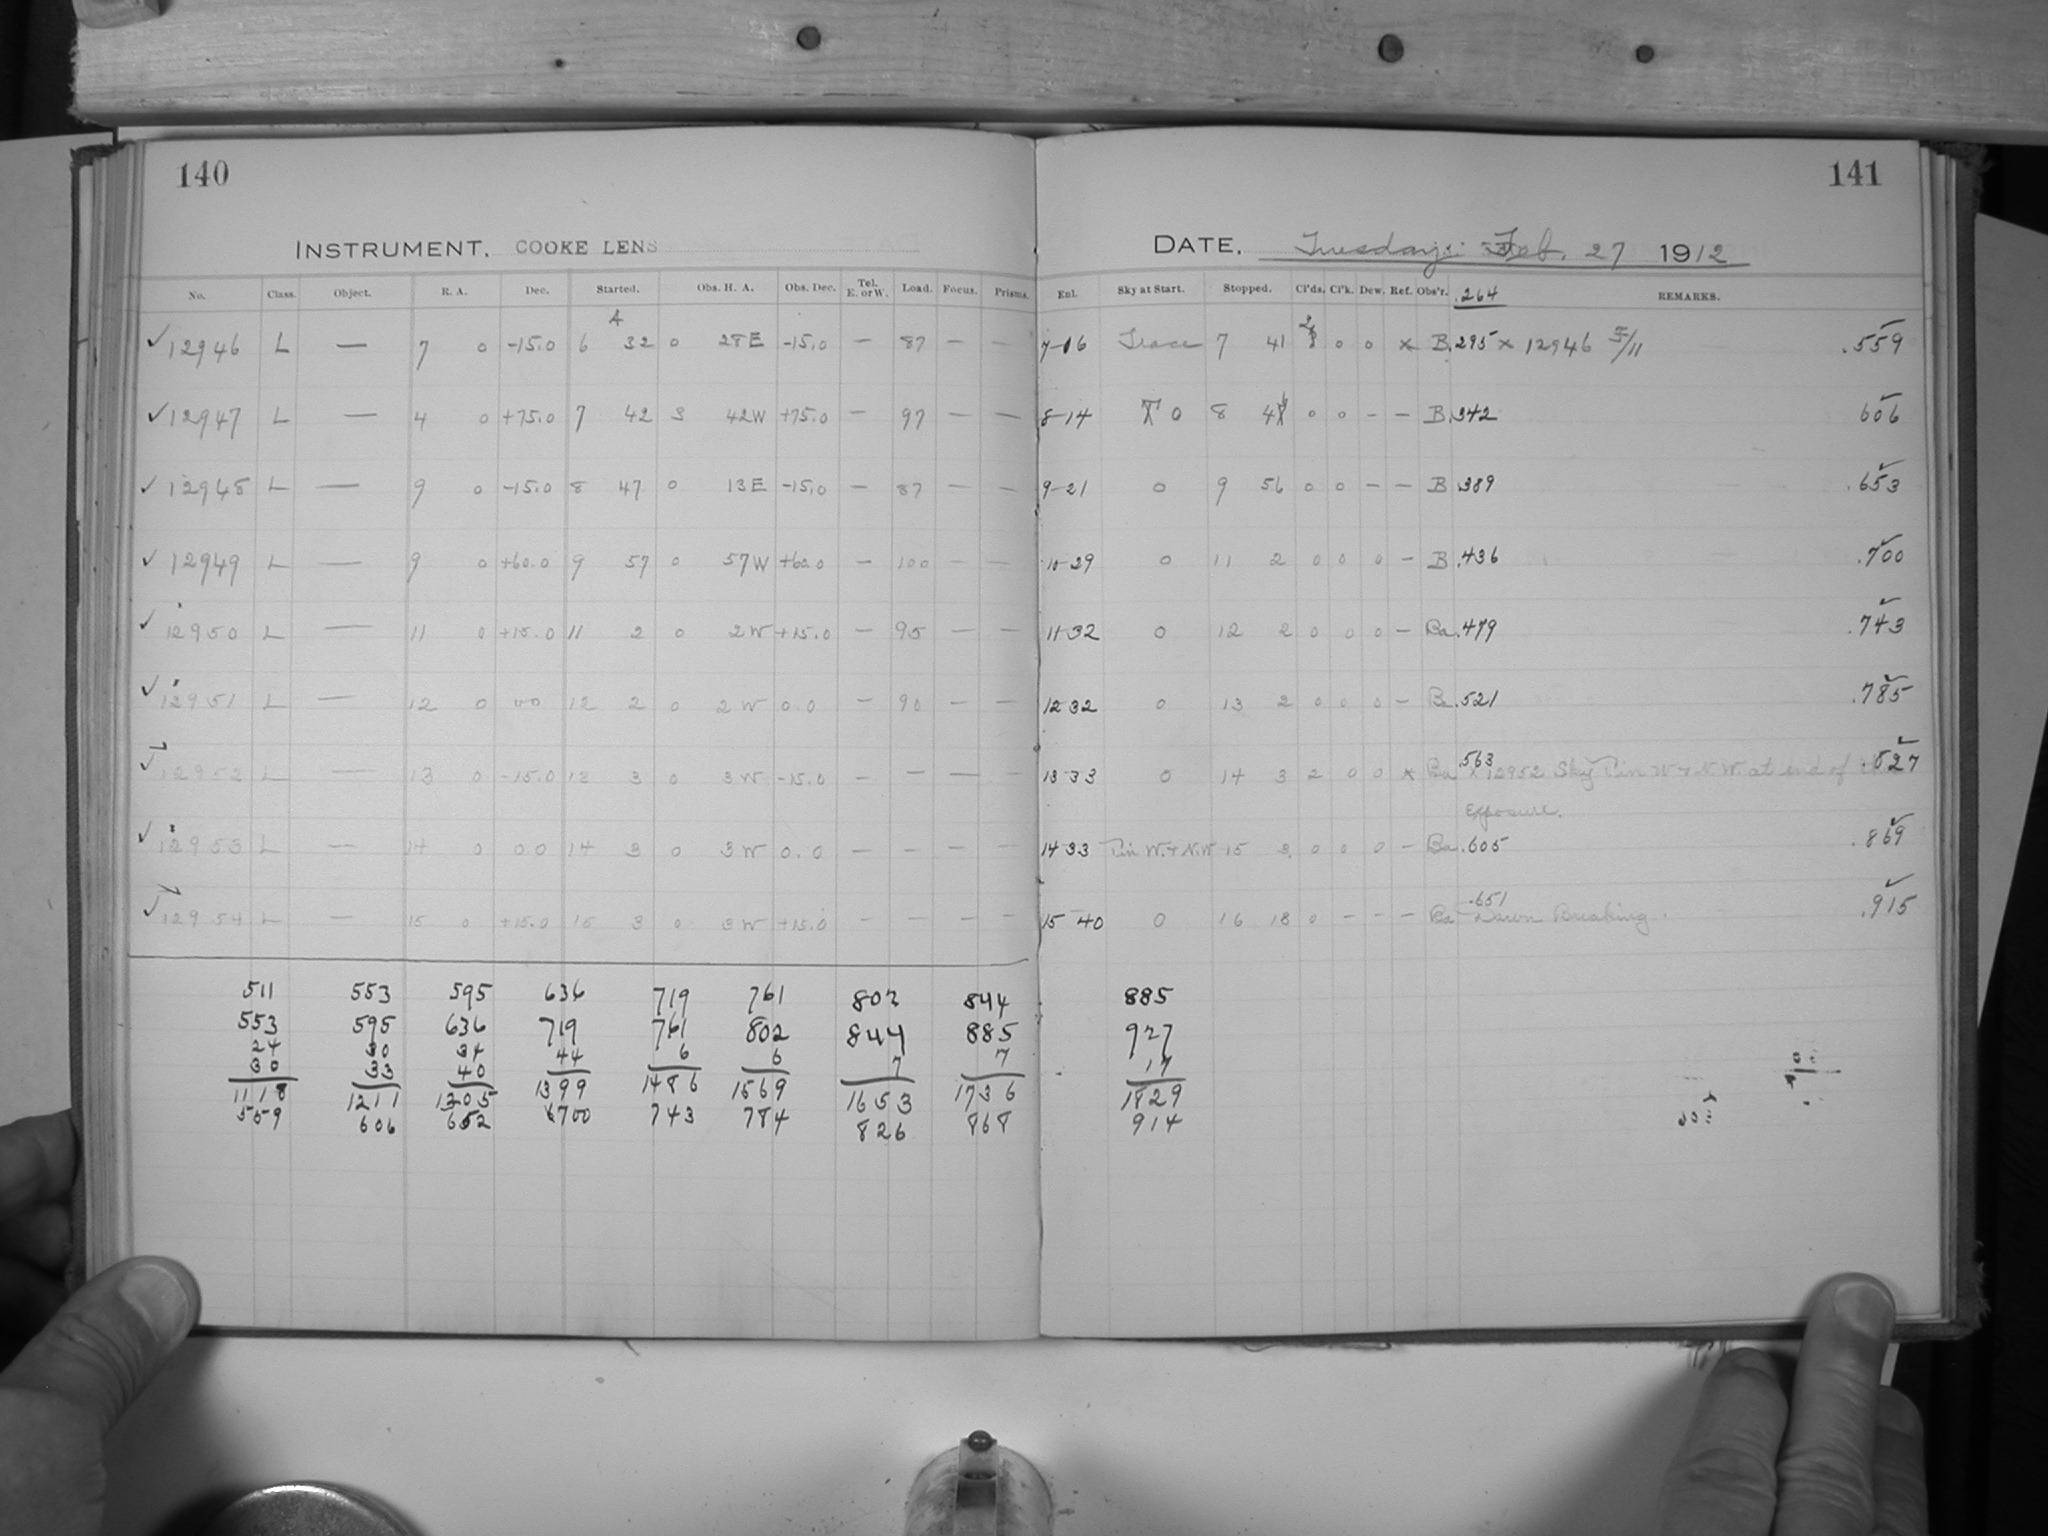 140
141
INSTRUMENT. COOKE LENS
DATE. Tuesday: Feb. 27 1912
No. Class. Object. R. A. Dec. Started. Obs. H. A. Obs. Dec. Tel. E. or W. Load. Focus. Prisms. Enl. Sky at Start. Stopped. Cl'ds. Cl'k. Dew. Ref. Obs'r. .264 REMARKS.
✓ 12946 L — 7 0 -15.0 6 32 0 28E -15.0 — 87 — — 7-16 Trace 7 41 0 0 x B .295 x 12946 .559
✓ 12947 L — 4 0 +75.0 7 42 3 42W +75.0 — 97 — — 8-14 0 8 0 0 — — B .342 606
✓ 12948 L — 9 0 -15.0 8 47 0 13E -15.0 — 87 — — 9-21 0 9 56 0 0 — — B .389 .653
✓ 12949 L — 9 0 +60.0 9 57 0 57W +60.0 — 100 — — 10-29 0 11 2 0 0 0 — B .436 .700
✓ 12950 L — 11 0 +15.0 11 2 0 2W +15.0 — 95 — — 11-32 0 12 2 0 0 0 — Ba .479 .743
✓ 12951 L — 12 0 0.0 12 2 0 2W 0.0 — 90 — — 12-32 0 13 2 0 0 0 — Ba .521 .785
✓ 12952 L — 13 0 -15.0 13 3 0 3W -15.0 — — — — 13-33 0 14 3 2 0 0 x Ba .563 x 12952 Sky Tin W & N.W. at end of .827
Exposure.
✓ 12953 L — 14 0 0.0 14 3 0 3W 0.0 — — — — 14-33 Tin W. & N.W 15 3 0 0 0 — Ba .605 .869
✓ 12954 L — 15 0 +15.0 15 3 0 3W +15.0 — — — — 15-40 0 16 18 0 — — — Ba .651 Dawn Breaking. .915
511 553 595 636 719 761 802 844 885
553 595 636 719 761 802 844 885 927
24 30 34 44 6 6 7 7 17
30 33 40
1118 1211 1305 1399 1486 1569 1653 1736 1829
559 606 652 700 743 784 826 868 914